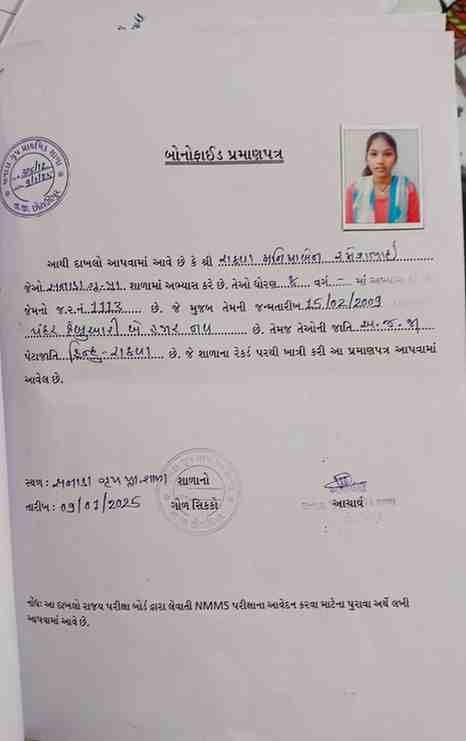 બોનોફાઈડ પ્રમાણપત્ર
આથી દાખલો આપવામાં આવે છે કે શ્રી રાઠવા મનિષાબેન રમેશભાઈ
જેઓ સનાડા વૃ.પ્રા. શાળામાં અભ્યાસ કરે છે. તેઓ ધોરણ ૮ વર્ગ - માં અભ્યાસ
જેમનો જ.ર.નં. 1113 છે. જે મુજબ તેમની જન્મતારીખ 15/02/2009
પંદર ફેબ્રુઆરી બે હજાર નવ છે. તેમજ તેઓની જાતિ અ.જ.જા
પેટાજાતિ હિન્દુ-રાઠવા છે. જે શાળાના રેકર્ડ પરથી ખાત્રી કરી આ પ્રમાણપત્ર આપવામાં
આવેલ છે.
સ્થળ : સનાડા વૃપ પ્રા.શાળા શાળાનો
તારીખ : 09/01/2025 ગોળ સિક્કો આચાર્ય
નોંધઃ આ દાખલો રાજ્ય પરીક્ષા બોર્ડ દ્વારા લેવાતી NMMS પરીક્ષાના આવેદન કરવા માટેના પુરાવા અર્થે લખી
આપવામાં આવે છે.